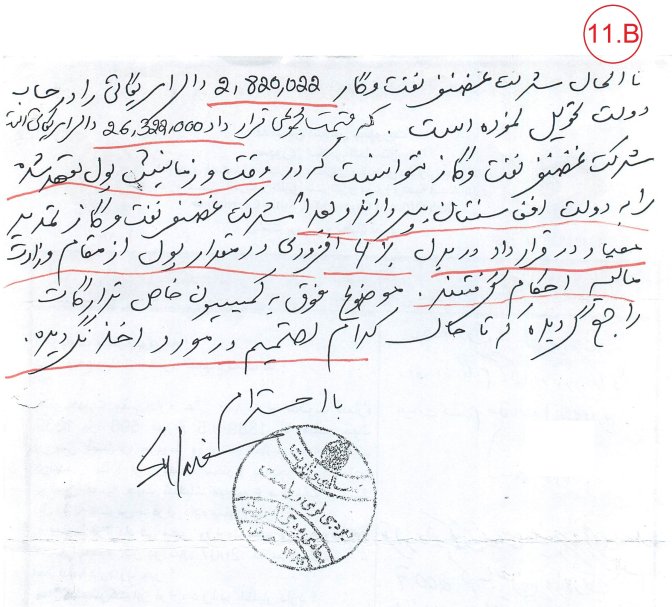 11.B
تا الحال شرکت غضنفر نفت و گاز 2,820,022 دالر امریکائی را در حساب
دولت تحویل نموده است. که قیمت مجموعی قرار داد 26,322,000 دالر امریکائی است
شرکت غضنفر نفت و گاز نتوانست که در وقت و زمانیش پول تعهد شده
را به دولت افغانستان بپردازند و بعداً شرکت غضنفر نفت و گاز تمدید
میعاد در قرار داد در بدل افزودی در مقدار پول از مقام وزارت
مالیه احکام گرفتند. موضوع فوق به کمیسیون خاص تدارکات
راجع گردیده که تا حال کدام تصمیم در مورد اخذ نگردیده.
با احترام